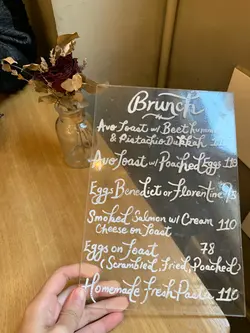 Brunch
Avo Toast w/ Beet hummus
& Pistachio Dukkah
Avo Toast w/ Poached Eggs 110
Eggs Benedict or Florentine 95
Smoked Salmon w/ Cream 110
Cheese on Toast
Eggs on Toast 78
( Scrambled, Fried, Poached
Homemade Fresh Pasta 110